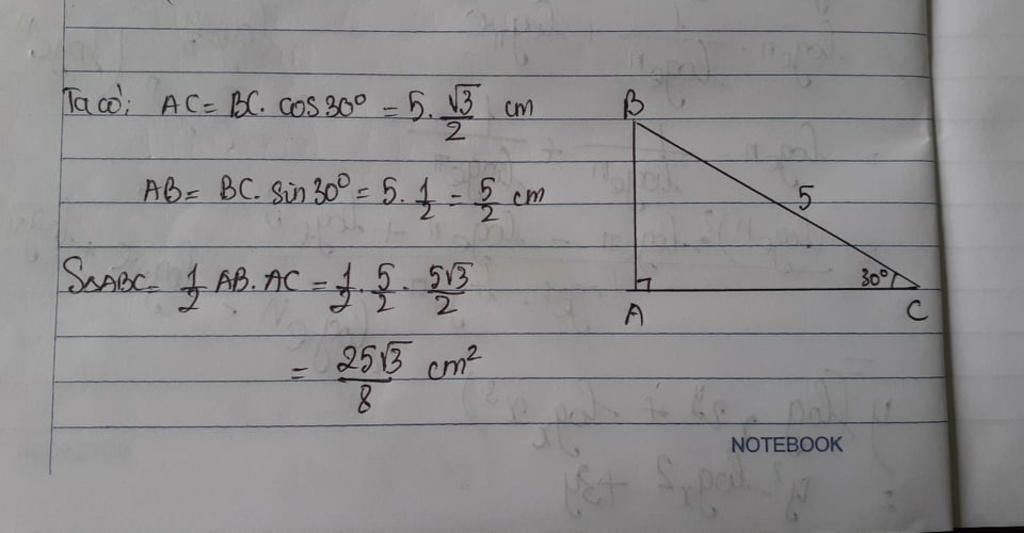 Ta có: AC = BC. cos 30° = 5. √3/2 cm
AB = BC. sin 30° = 5. 1/2 = 5/2 cm
SΔABC = 1/2 AB. AC = 1/2 . 5/2 . 5√3/2
= 25√3/8 cm²
B
5
30°
A
C
NOTEBOOK